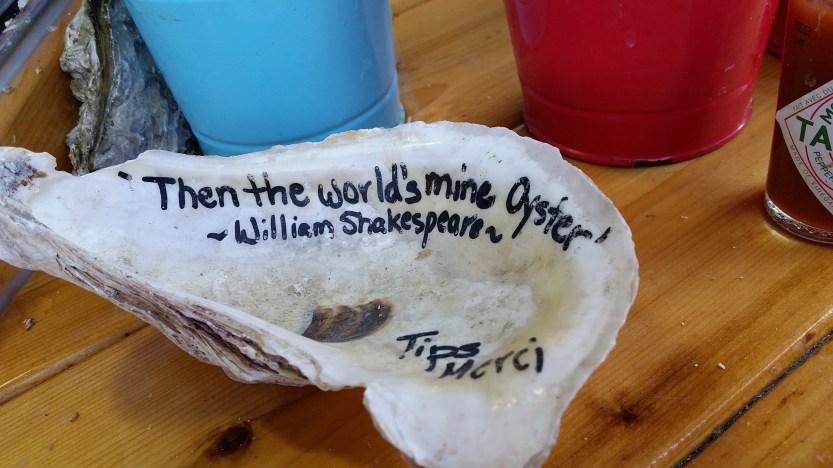 'Then the world's mine Oyster'
~William Shakespeare~
Tips
Merci
TA